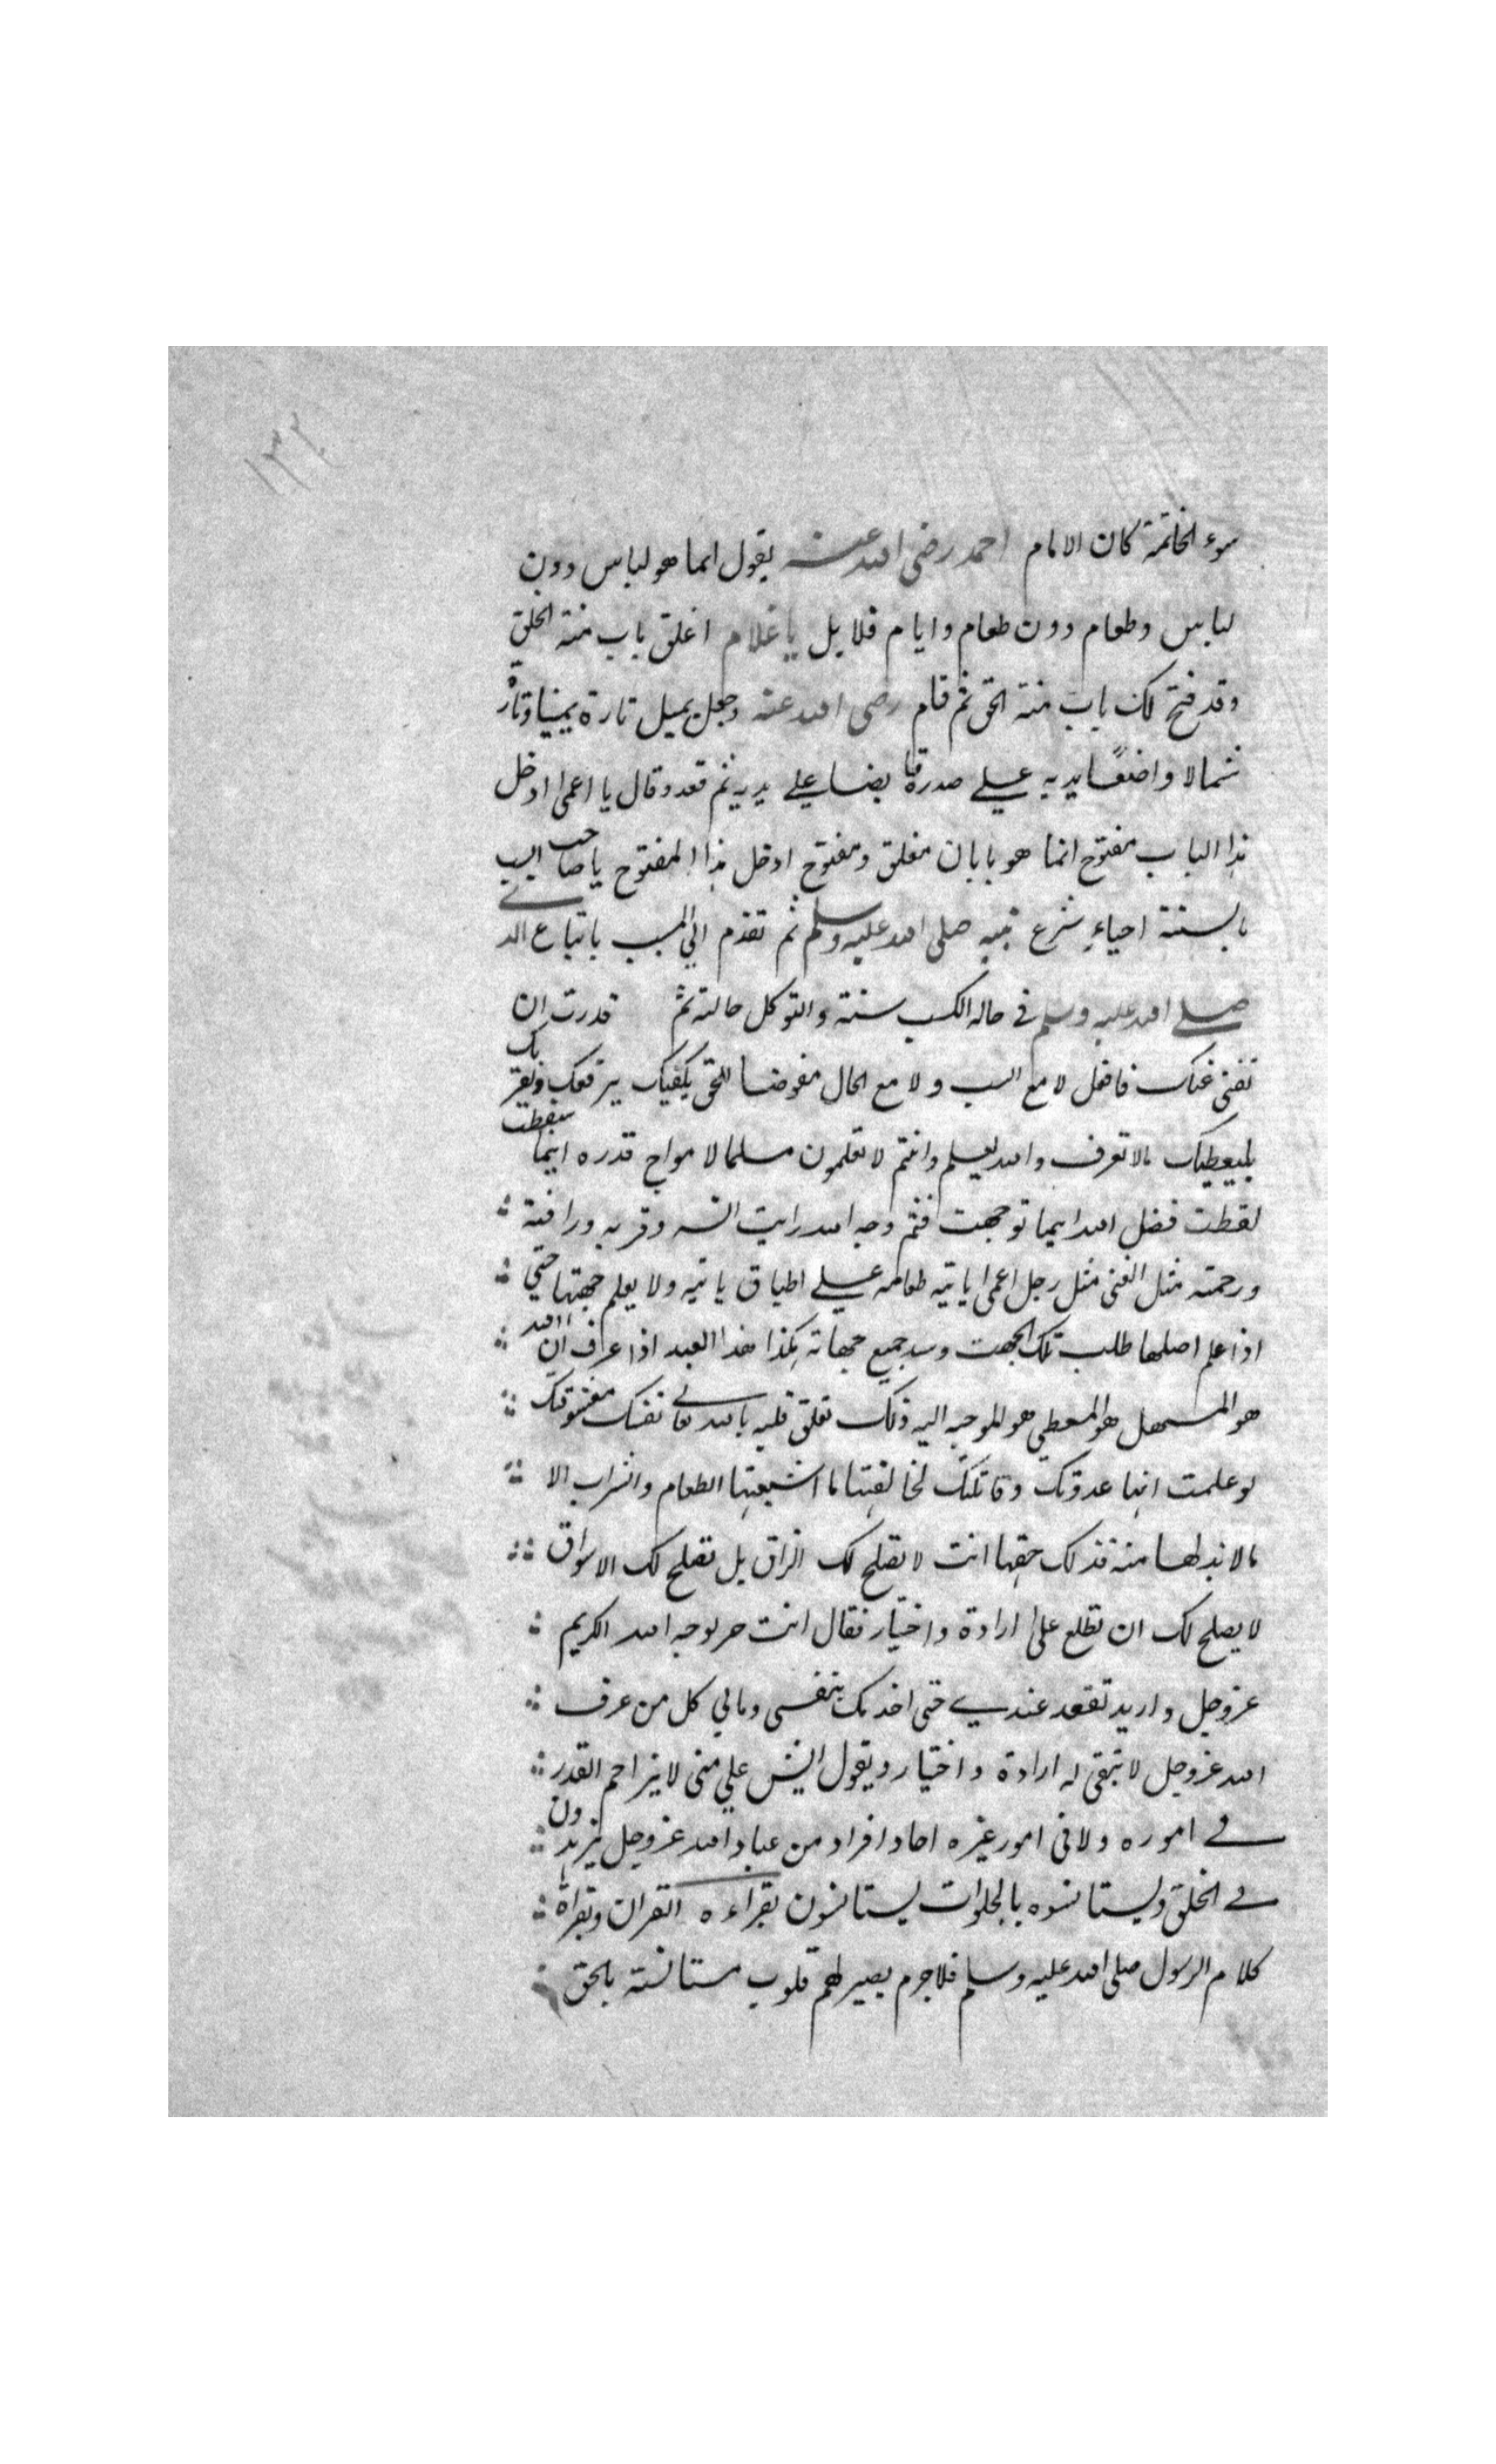 ١٣٢
سوء الخاتمة كان الامام احمد رضى الله عنه يقول انما هو لباس دون
لباس وطعام دون طعام وايام قلايل يا غلام اغلق باب منة الخلق
وقد فتح لك باب منة الحق ثم قام رضى الله عنه وجعل يميل تارة يمينا وتار
شمالا واضعًا يديه على صدره قابضا على يديه ثم قعد وقال يا اعمى ادخل
هذا الباب مفتوح انما هو بابان مغلق ومفتوح ادخل هذا المفتوح يا صاحب
بالسنة احياء شرع نبيه صلى الله عليه وسلم ثم تقدم الى المسبب باتباع
صلى الله عليه وسلم في حاله الكسب سنة والتوكل حالته ثم قدرت ان
تفنى عنك فافعل لا مع السبب ولا مع الحال مفوضا للحق يكفيك يرفعك
مالا تعرف والله يعلم وانتم لا تعلمون مسلما لامواج قدره اينما سقطت
لقطت فضل الله اينما توجهت فثم وجه الله رايت انسه وقربه ورافته
ورحمته مثل الغنى مثل رجل اعمى ياتيه طعامه على اطباق ياتيه ولا يعلم جهتها حتى
اذا علم اصلها طلب تلك الجهت وسد جميع جهاته هكذا هذا العبد اذا عرف ان الله
هو المسهل هو المعطي هو الموجه اليه ذلك تعلق قلبه بالله تعالى نفسك معشوقتك
لو علمت انها عدوتك وقاتلتك لخالفتها ما اشبعتها الطعام والشراب الا
مالا بد لها منه فذلك حقها انت لا تصلح لك الزاق بل تصلح لك الاسواق
لا يصلح لك ان تطلع على ارادة واختيار فقال انت حر لوجه الله الكريم
عز وجل واريد تقعد عندي حتى اخدمك بنفسي ومالي كل من عرف
الله عز وجل لا تبقى له ارادة واختيار ويقول ايش علي منى لا يزاحم القدر
في اموره ولا في امور غيره احاد افراد من عباد الله عز وجل يزهدون
في الخلق ويستانسوه بالخلوات يستانسون بقراءه القران وبقراة
كلام الرسول صلى الله عليه وسلم فلا جرم يصير لهم قلوب مستانسة بالحق